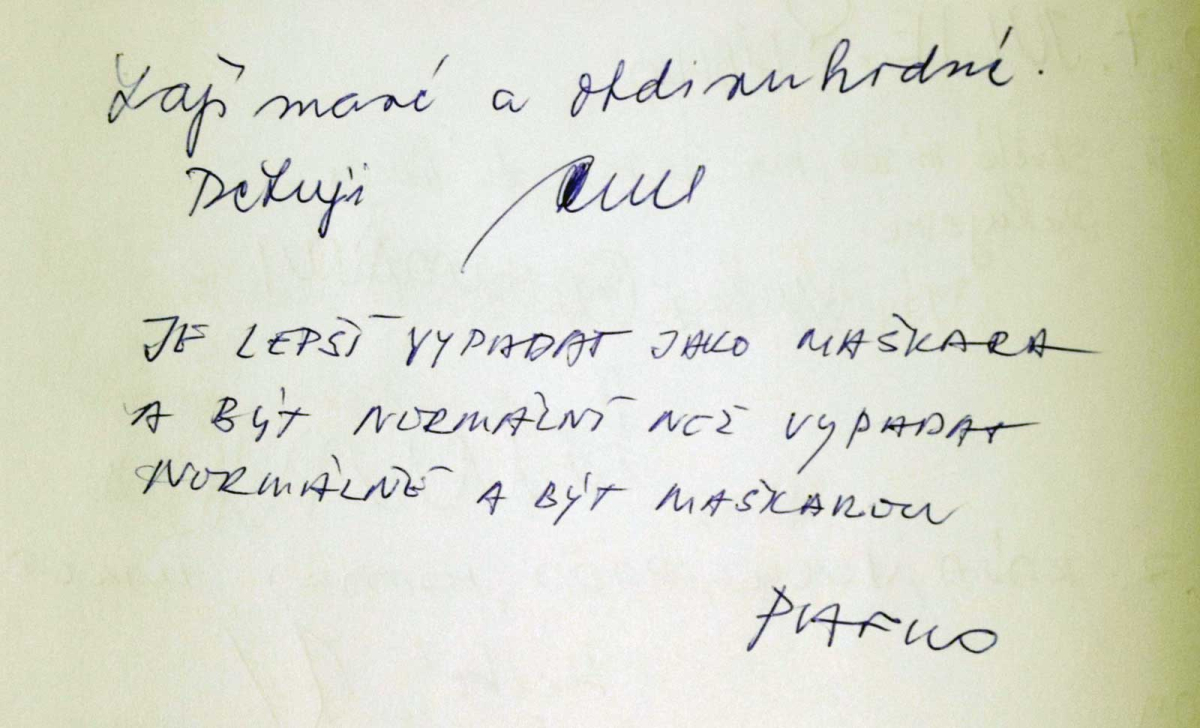 Zajímavé a obdivuhodné.
Děkuji
JE LEPŠÍ VYPADAT JAKO MAŠKARA
A BÝT NORMÁLNÍ NEŽ VYPADAT
NORMÁLNĚ A BÝT MAŠKAROU